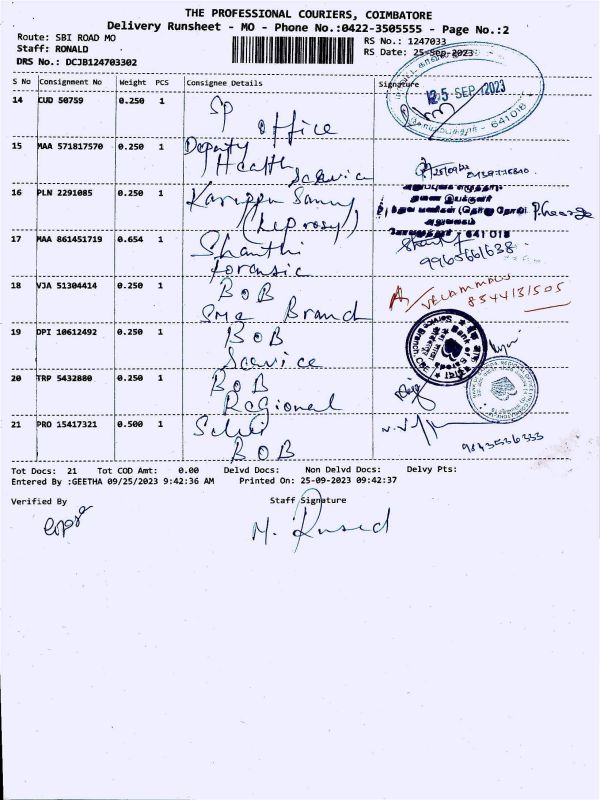 THE PROFESSIONAL COURIERS, COIMBATORE
Delivery Runsheet - MO - Phone No.:0422-3505555 - Page No.:2
Route: SBI ROAD MO
RS No.: 1247033
Staff: RONALD
RS Date: 25-Sep-2023
DRS No.: DCJB124703302
S No Consignment No Weight PCS Consignee Details Signature
25 SEP 2023
641018
14 CUD 50759 0.250 1 SP
office
15 MAA 571817570 0.250 1 Deputy
Health
Service
16 PLN 2291085 0.250 1 Karuppu Samy
(Leprosy)
துணை இயக்குனர்
அலுவலகம்
641018
P. George
17 MAA 861451719 0.654 1 Shanthi
forensic
9965661638
18 VJA 51304414 0.250 1 BOB
SME Brand
VELAMMAL
8544131505
19 DPI 10612492 0.250 1 BOB
Service
Bank of Baroda
20 TRP 5432880 0.250 1 BOB
Regional
21 PRO 15417321 0.500 1
BOB
9843536333
Tot Docs: 21 Tot COD Amt: 0.00 Delvd Docs: Non Delvd Docs: Delvy Pts:
Entered By :GEETHA 09/25/2023 9:42:36 AM Printed On: 25-09-2023 09:42:37
Verified By Staff Signature